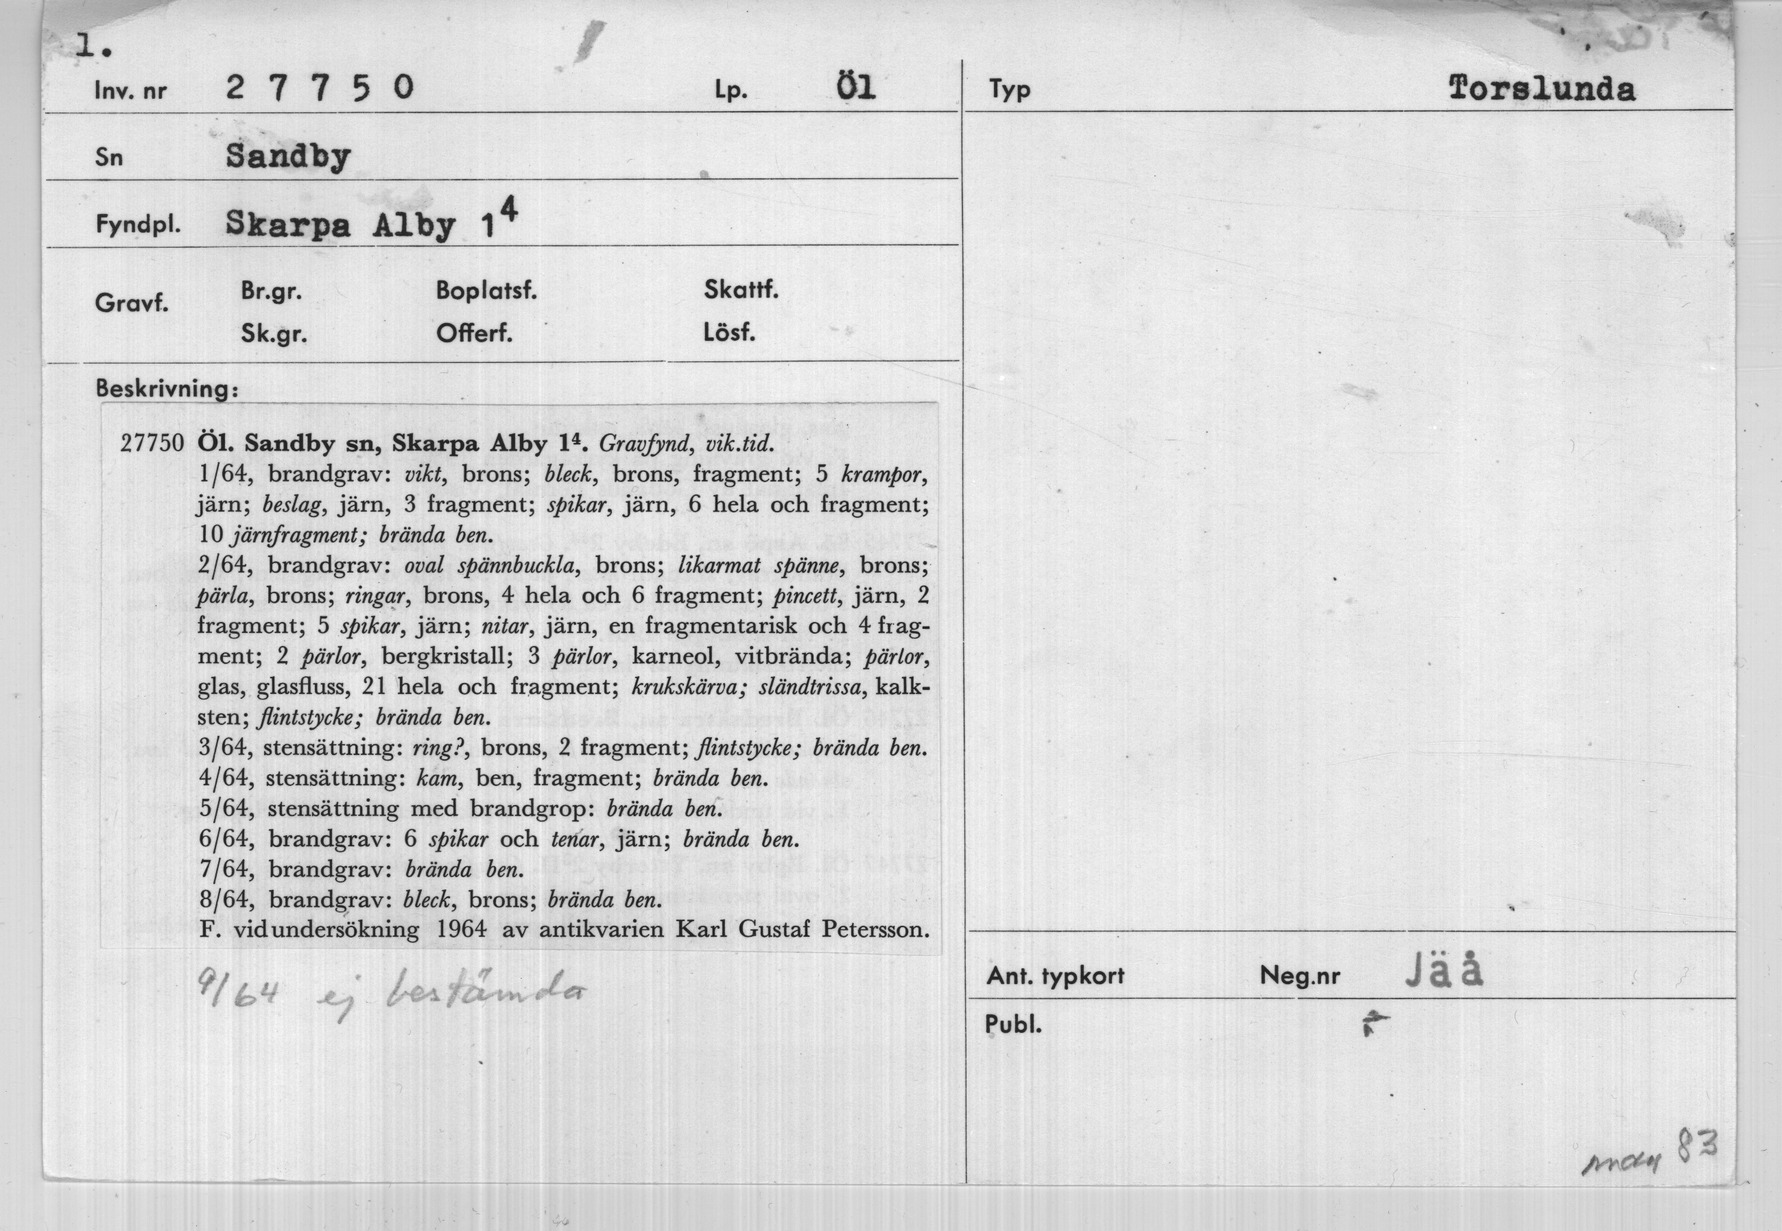 1.
Inv. nr 2 7 7 5 0 Lp. Öl
Sn Sandby
Fyndpl. Skarpa Alby 1⁴
Gravf. Br.gr. Boplatsf. Skattf.
Sk.gr. Offerf. Lösf.
Beskrivning:
27750 Öl. Sandby sn, Skarpa Alby 1⁴. Gravfynd, vik.tid.
1/64, brandgrav: vikt, brons; bleck, brons, fragment; 5 krampor,
järn; beslag, järn, 3 fragment; spikar, järn, 6 hela och fragment;
10 järnfragment; brända ben.
2/64, brandgrav: oval spännbuckla, brons; likarmat spänne, brons;
pärla, brons; ringar, brons, 4 hela och 6 fragment; pincett, järn, 2
fragment; 5 spikar, järn; nitar, järn, en fragmentarisk och 4 frag-
ment; 2 pärlor, bergkristall; 3 pärlor, karneol, vitbrända; pärlor,
glas, glasfluss, 21 hela och fragment; krukskärva; sländtrissa, kalk-
sten; flintstycke; brända ben.
3/64, stensättning: ring?, brons, 2 fragment; flintstycke; brända ben.
4/64, stensättning: kam, ben, fragment; brända ben.
5/64, stensättning med brandgrop: brända ben.
6/64, brandgrav: 6 spikar och tenar, järn; brända ben.
7/64, brandgrav: brända ben.
8/64, brandgrav: bleck, brons; brända ben.
F. vid undersökning 1964 av antikvarien Karl Gustaf Petersson.
9/64 ej bestämda
Typ Torslunda
Ant. typkort Neg.nr Jäå
Publ.
83